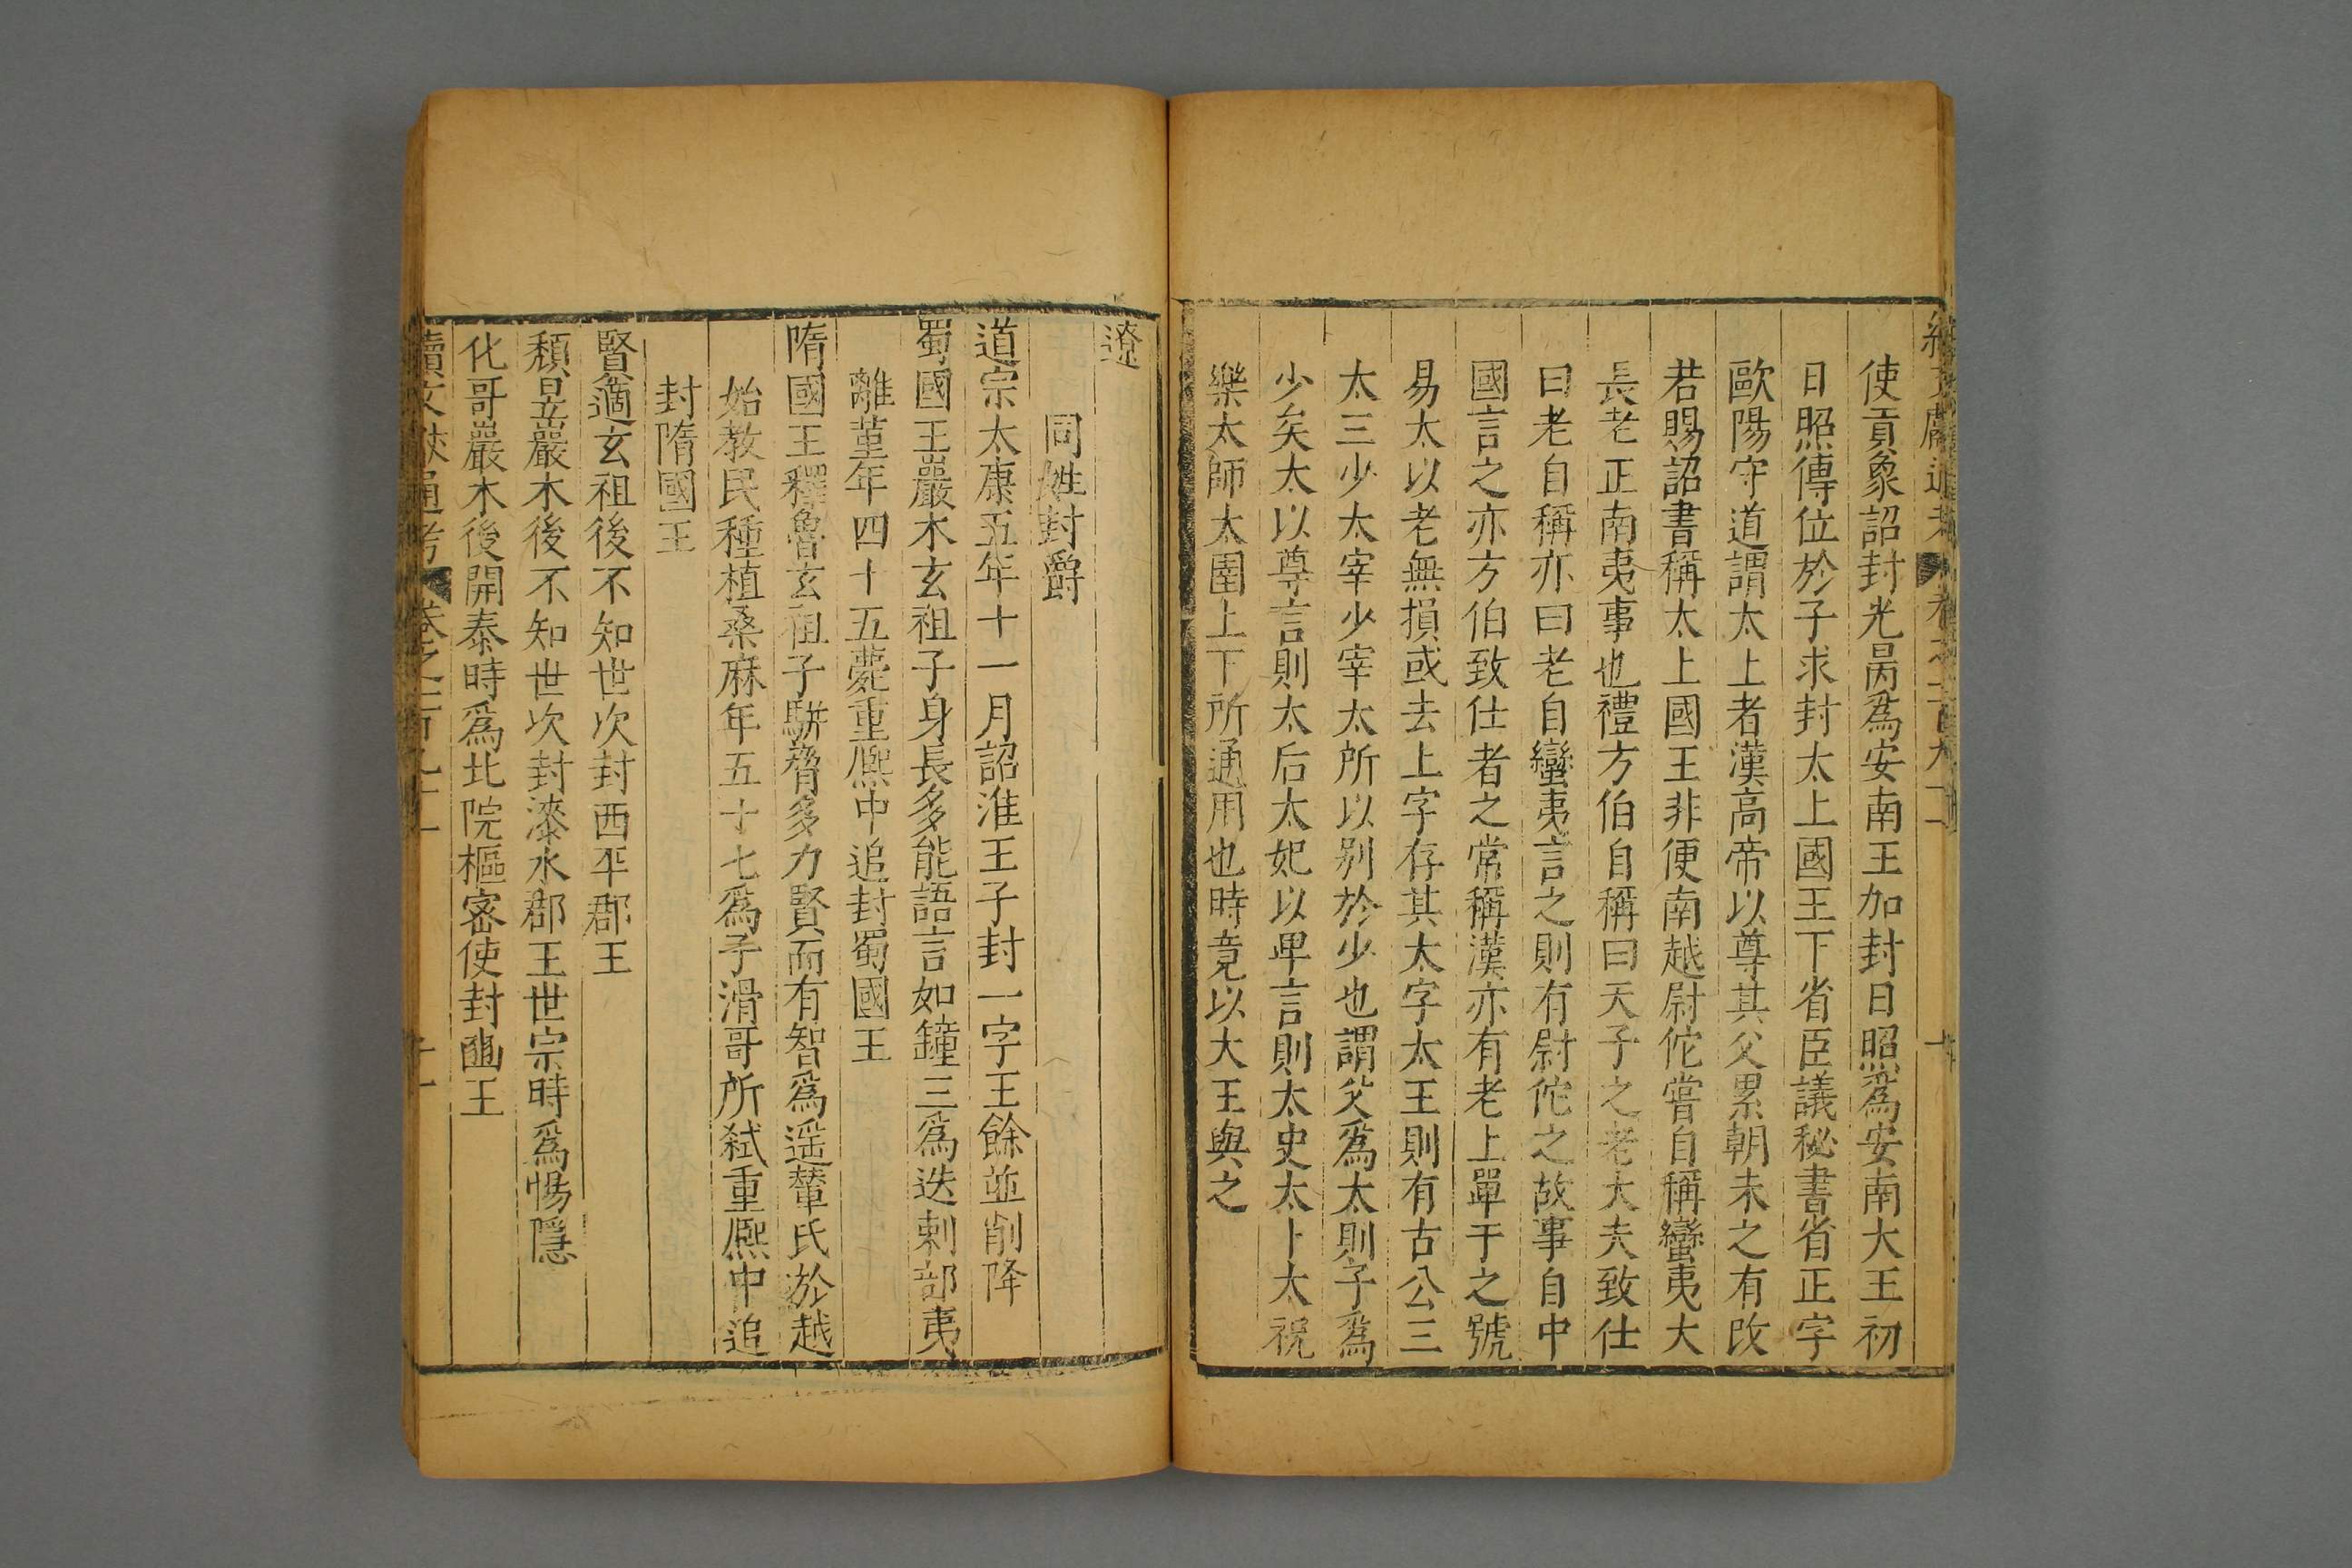 使貢象詔封光昺爲安南王加封日照爲安南大王初
日照傳位於子求封太上國王下省臣議秘書省正字
歐陽守道謂太上者漢高帝以尊其父累朝未之有改
若賜詔書稱太上國王非便南越尉佗嘗自稱蠻夷大
長老正南夷事也禮方伯自稱曰天子之老大夫致仕
曰老自稱亦曰老自蠻夷言之則有尉佗之故事自中
國言之亦方伯致仕者之常稱漢亦有老上單于之號
易太以老無損或去上字存其太字太王則有古公三
太三少太宰少宰太所以别於少也謂父爲太則子爲
少矣太以尊言則太后太妃以卑言則太史太卜太祝
樂太師太圉上下所通用也時竟以大王與之
遼
同姓封爵
道宗太康五年十一月詔淮王子封一字王餘並削降
蜀國王巖木玄祖子身長多能語言如鐘三爲迭剌部夷
離堇年四十五薨重熈中追封蜀國王
隋國王釋魯玄祖子駢脅多力賢而有智爲遥輦氏於越
始教民種植桑麻年五十七爲子滑哥所弑重熈中追
封隋國王
賢適玄祖後不知世次封西平郡王
頹昱巖木後不知世次封漆水郡王世宗時爲惕隱
化哥巖木後開泰時爲北院樞密使封豳王